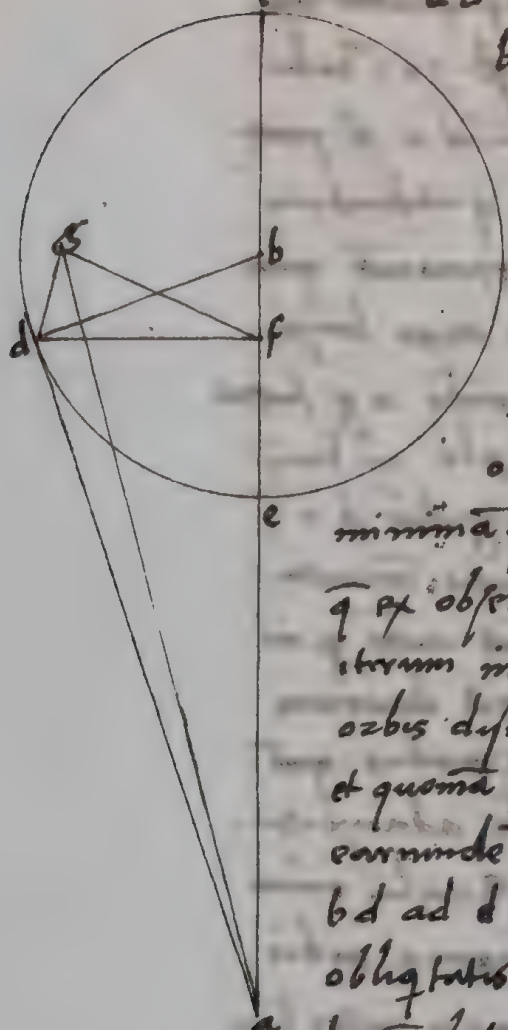 b
g
b
d
f
o
e
minimā
q̄ ex obſe
iterum in
orbis dyſ
et quomā
earundē
bd ad d
obliqtatis
a